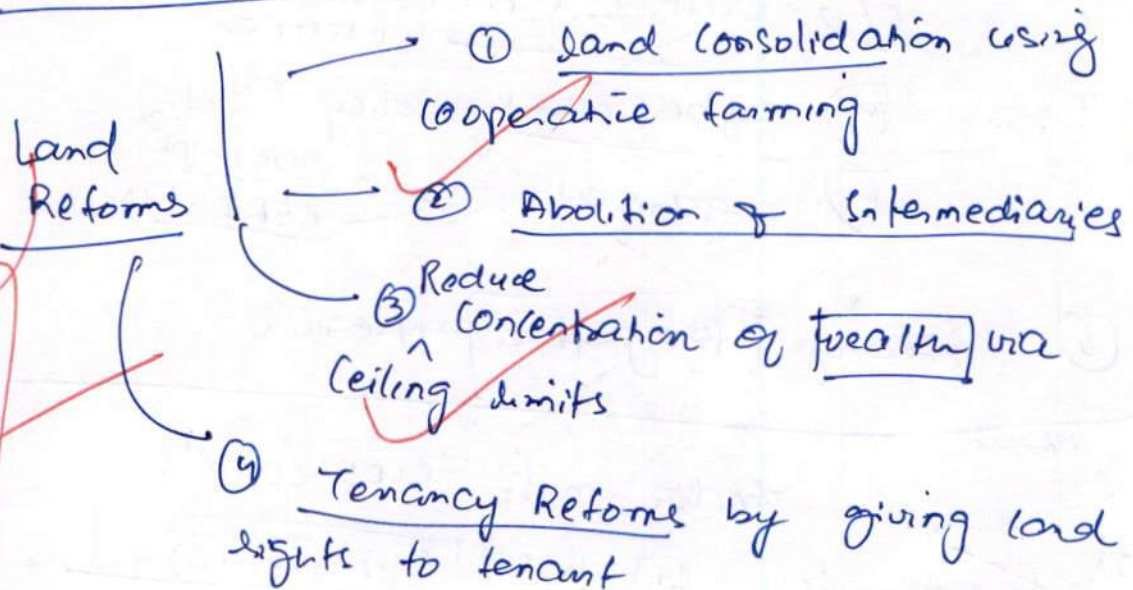 Land
Reforms
① Land Consolidation using
Cooperative farming
② Abolition of Intermediaries
③ Reduce
Concentration of wealth via
Ceiling limits
④ Tenancy Reforms by giving land
rights to tenant